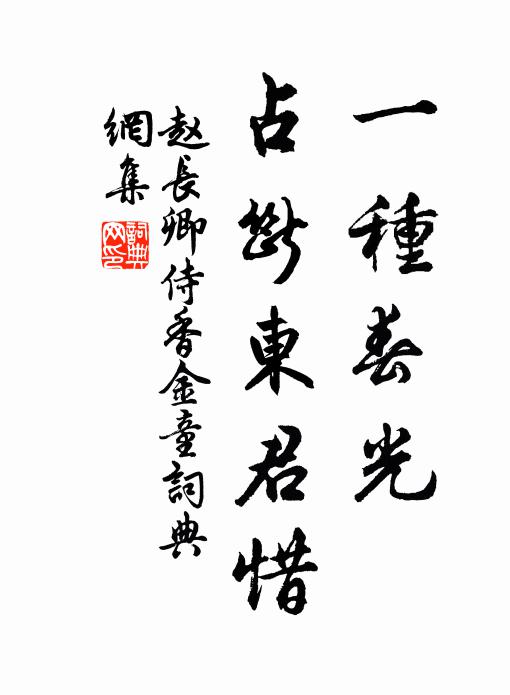 一種春光
占斷東君惜
赵長卿侍香金童詞典
網集
詞典
网印